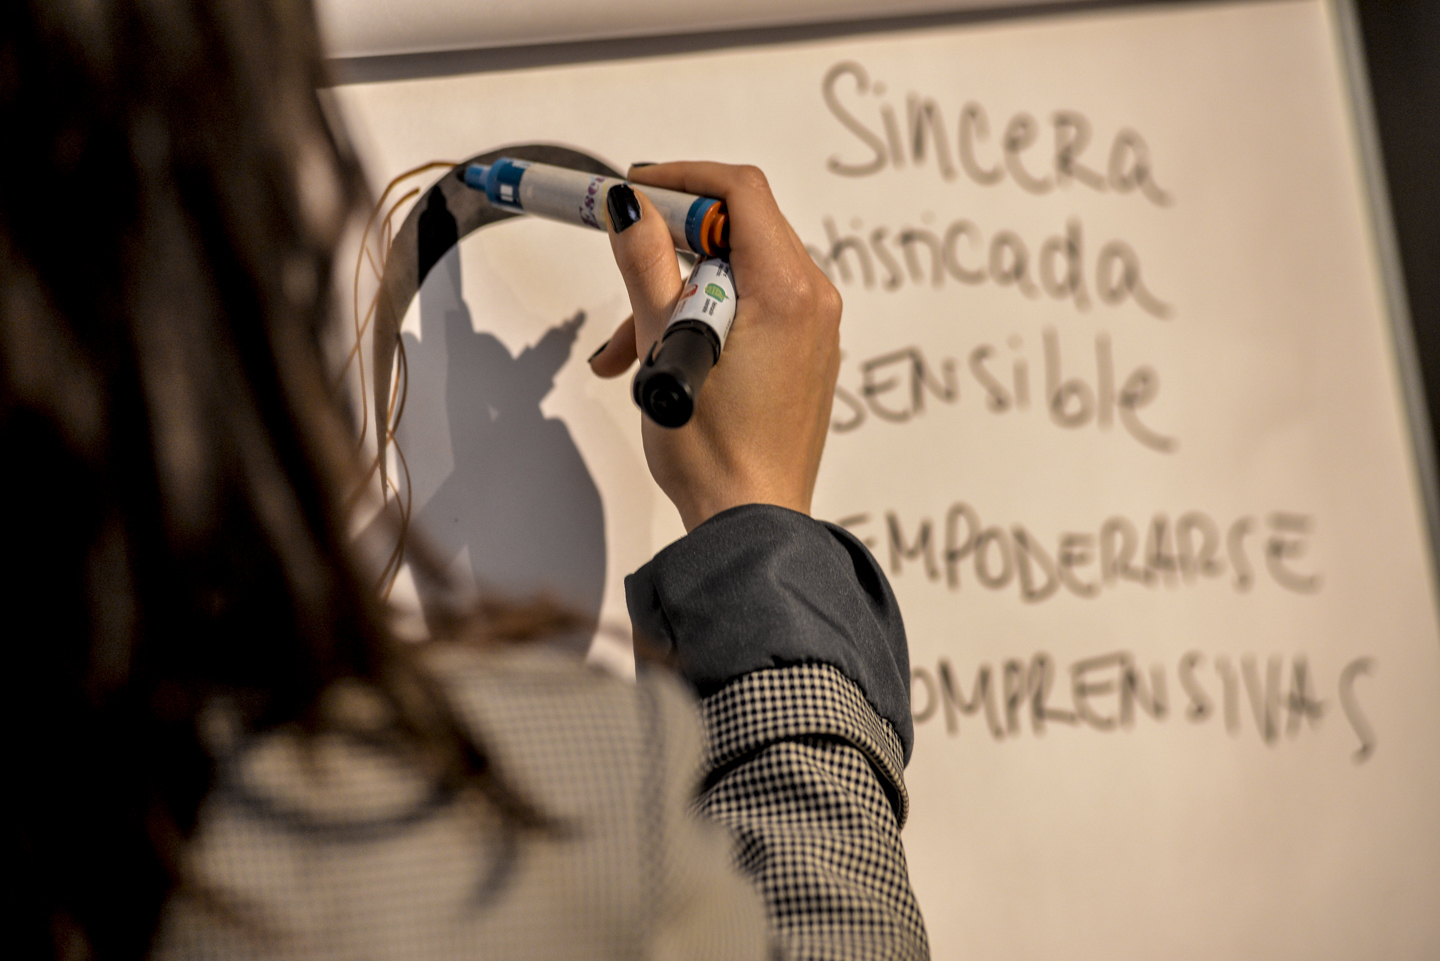 Sincera
ofisticada
SENSible
EMPODERARSE
OMPRENSIVAS
Esc